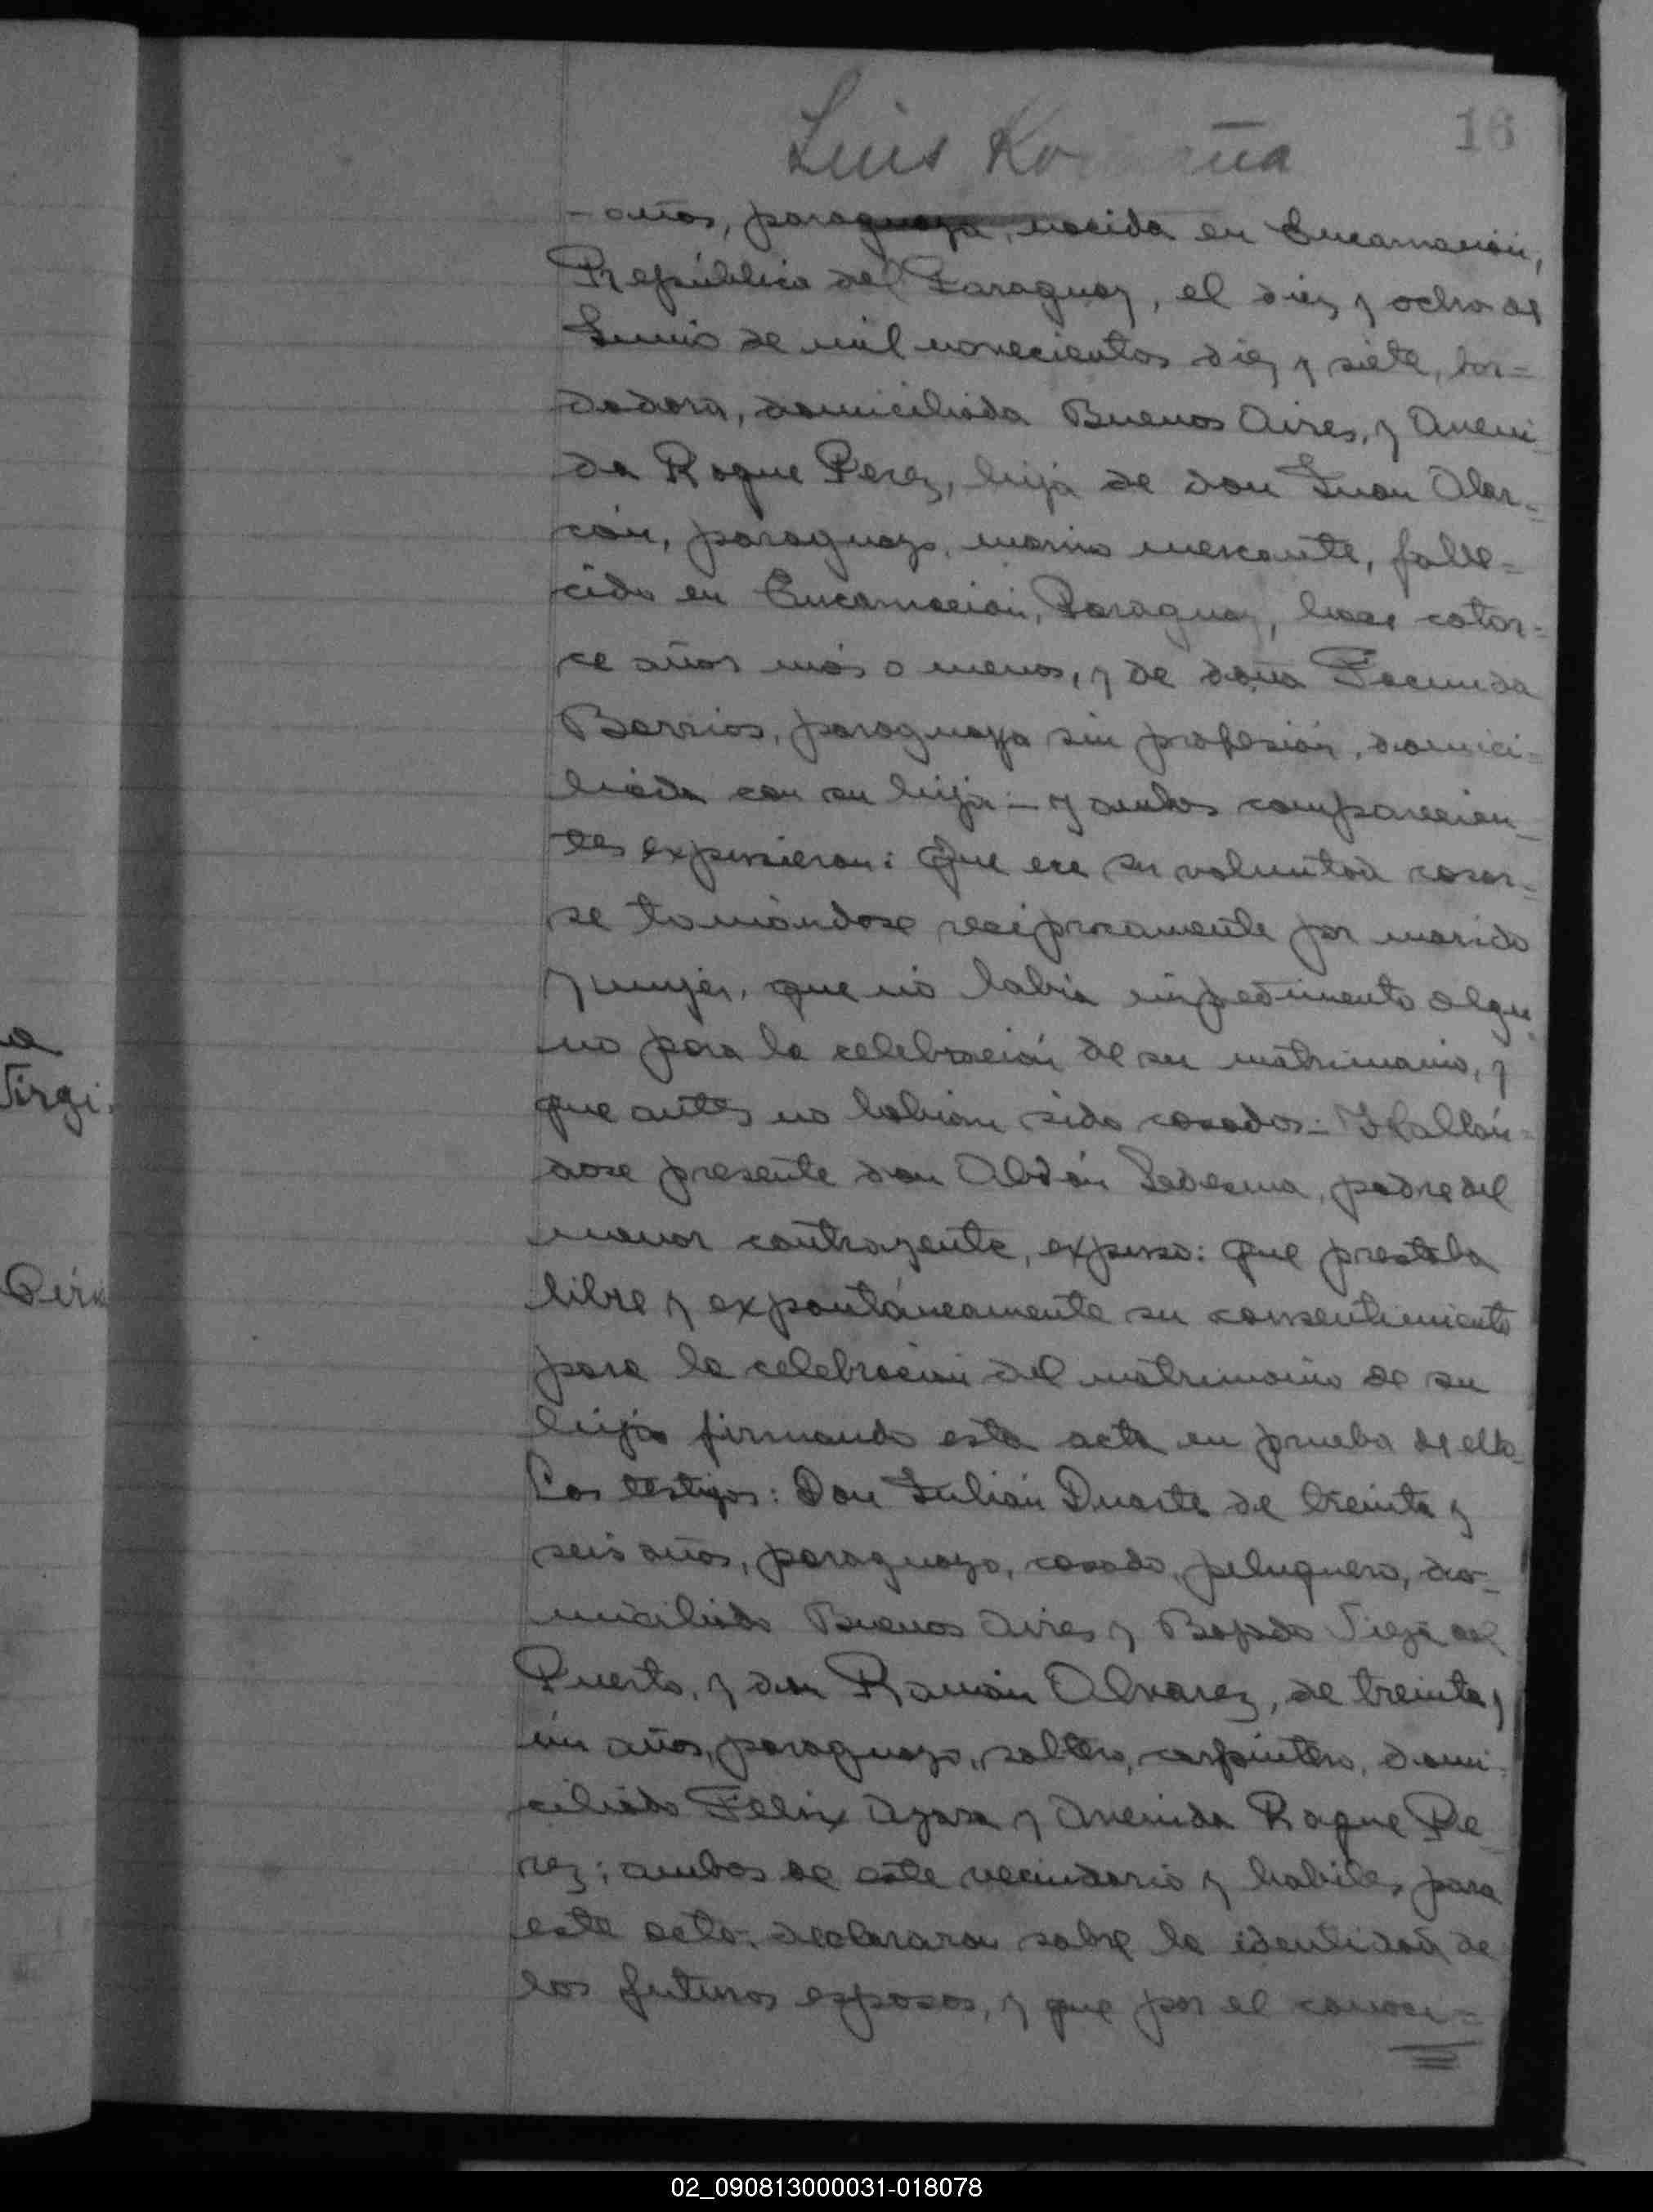 16
Luis
- años, paraguaya, nacida en Encarnación,
República del Paraguay, el diez y ocho de
Junio de mil novecientos diez y siete, bor=
dadora, domiciliada Buenos Aires, y Aveni_
da Roque Perez, hija de don Juan Alar=
cón, paraguayo, marino mercante, falle=
cido en Encarnación, Paraguay, hace cator=
ce años más o menos, y de doña Facunda
Barrios, paraguaya sin profesión, domici=
liada con su hija.- y ambos comparecien_
tes expusieron: Que era su voluntad casar=
se tomándose recíprocamente por marido
y mujer, que no había impedimento algu_
no para la celebración de su matrimonio, y
que antes no habían sido casados.- Hallán=
dose presente don Abdón Ledesma, padre del
menor contrayente, expuso: que prestaba
libre y expontáneamente su consentimiento
para la celebración del matrimonio de su
hijo firmando esta acta en prueba de ello_
Los testigos: Don Julián Duarte de treinta y
seis años, paraguayo, casado, peluquero, do=
miciliado Buenos Aires y Bajada Vieja del
Puerto, y don Ramón Alvarez, de treinta y
un años, paraguayo, soltero, carpintero, domi=
ciliado Felix Azara y Avenida Roque Pe_
rez; ambos de este vecindario y habiles para
este acto, declararon sobre la identidad de
los futuros esposos, y que por el conoci=
02_090813000031-018078